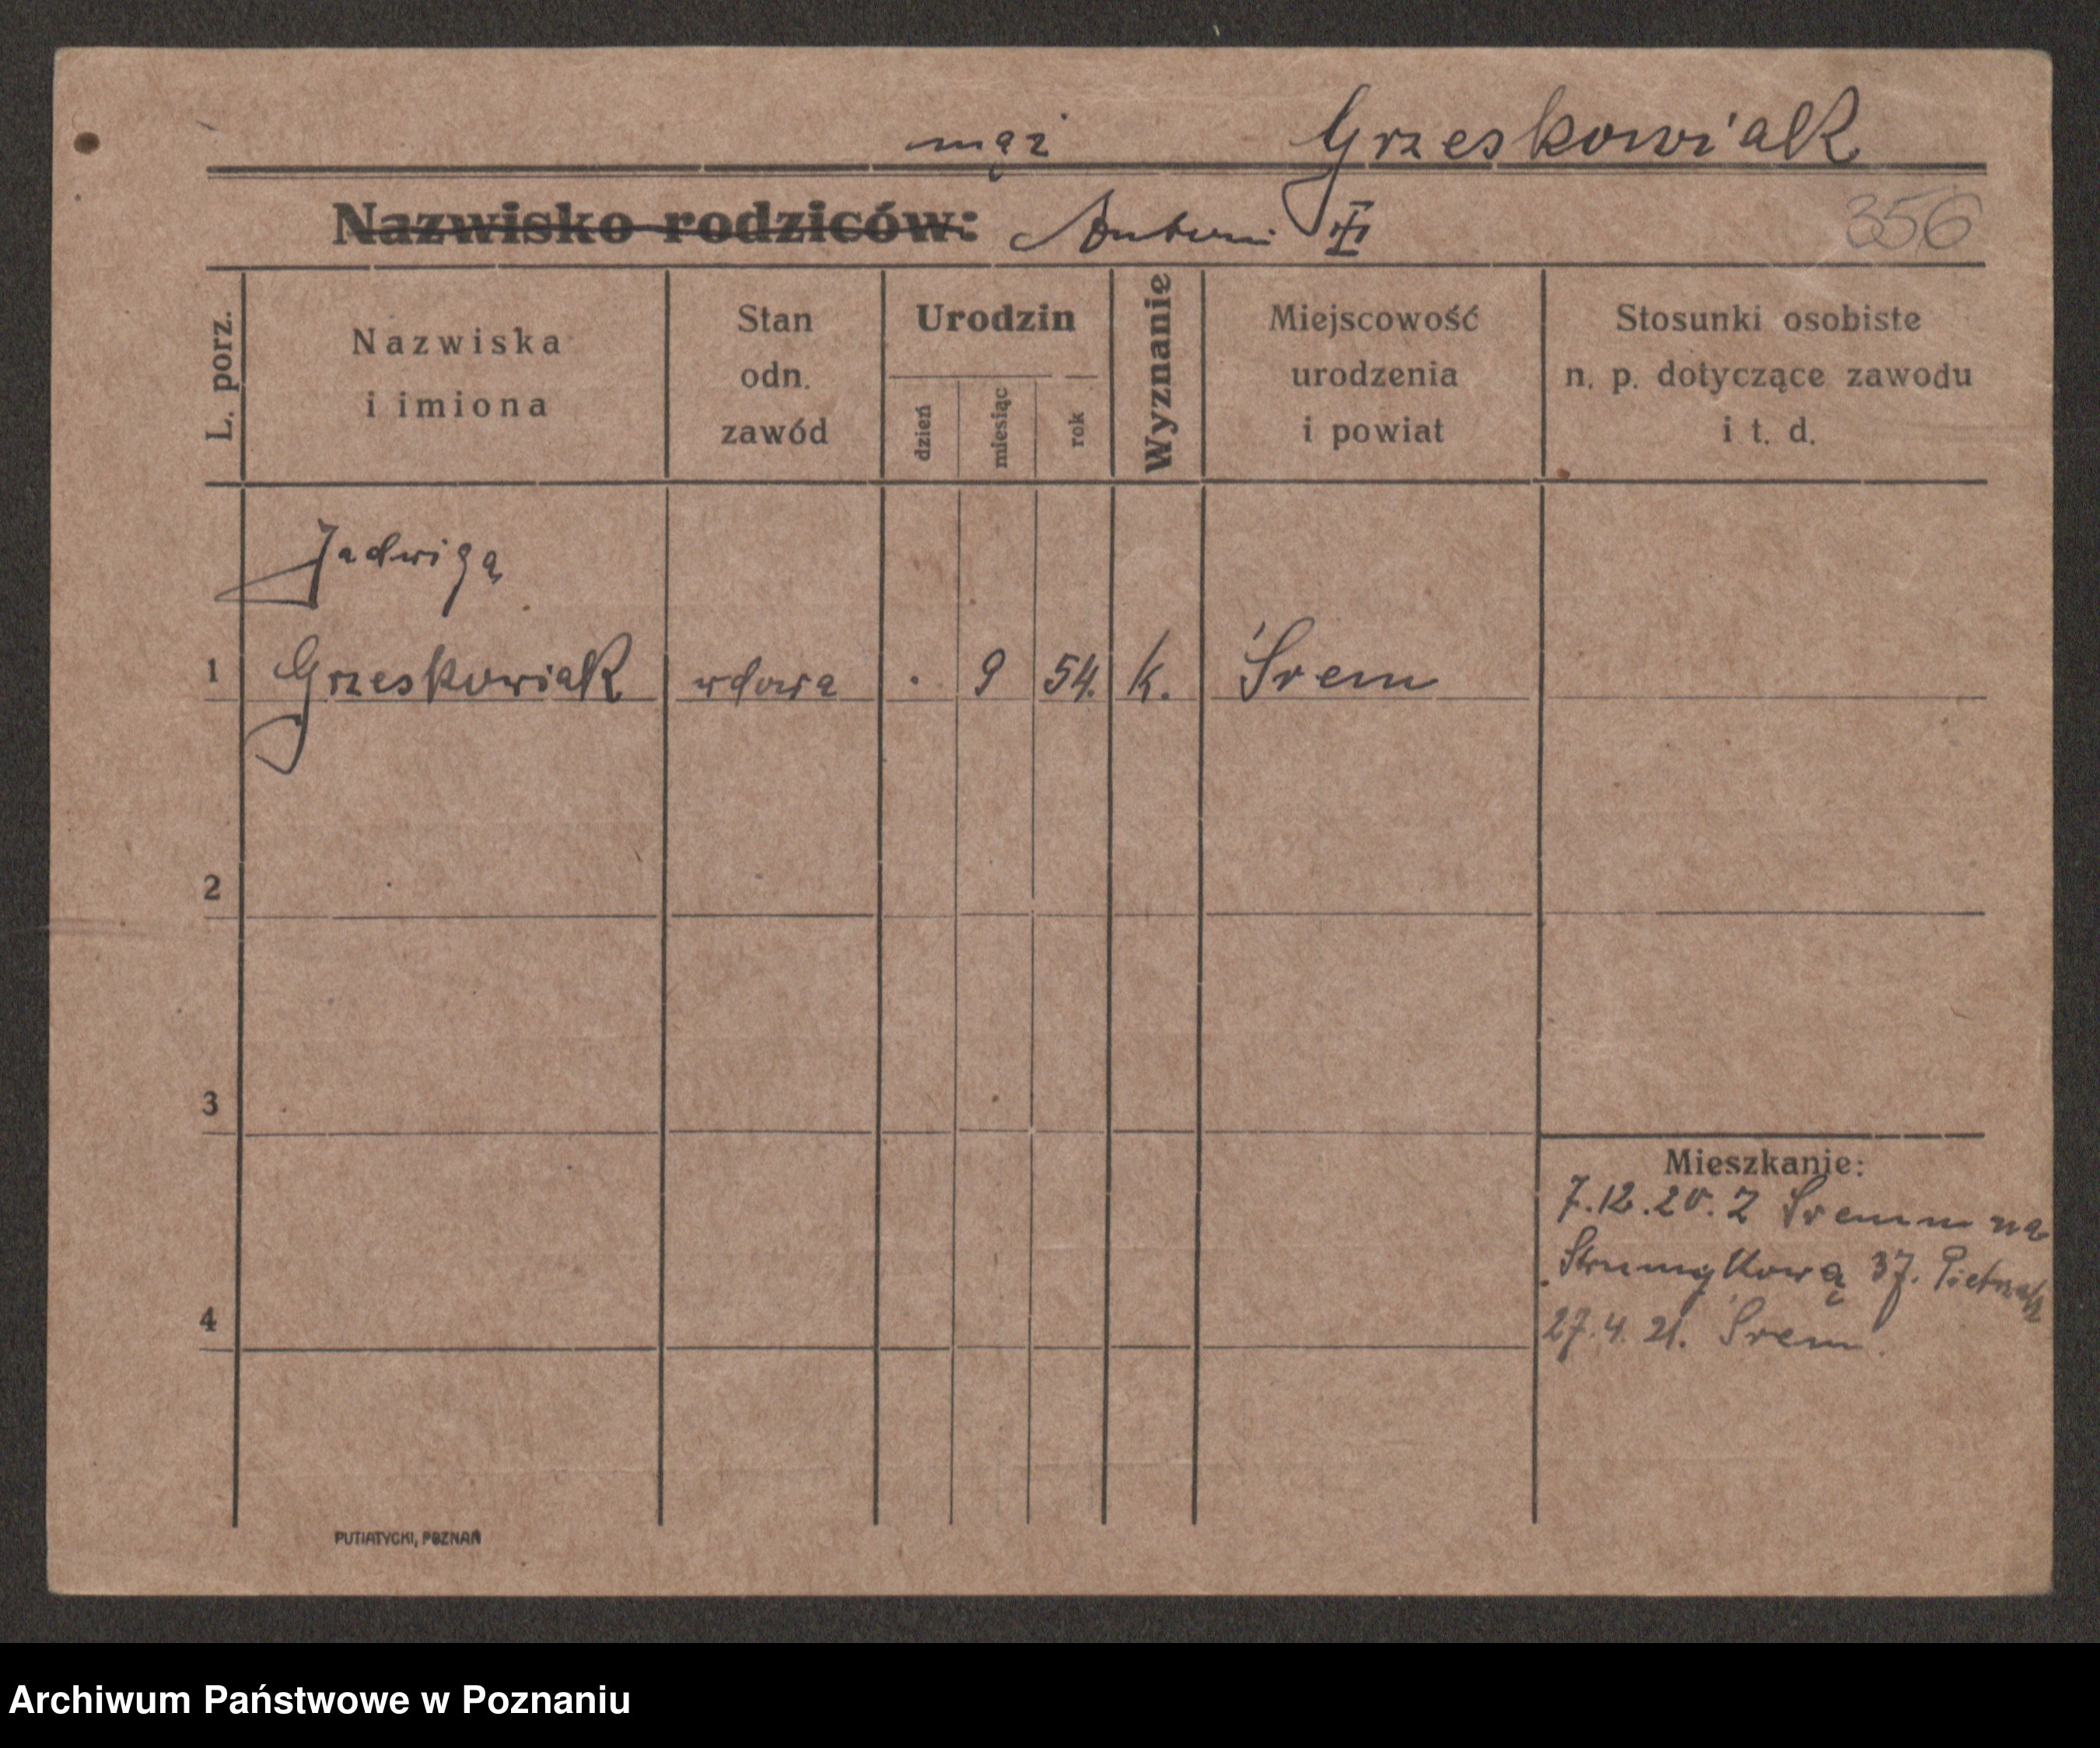 mąż Grzeskowiak
Nazwisko rodziców: Antoni
356
L. porz.
Nazwiska
i imiona
Stan
odn.
zawód
Urodzin
dzień
miesiąc
rok
Wyznanie
Miejscowość
urodzenia
i powiat
Stosunki osobiste
n. p. dotyczące zawodu
i t. d.
Jadwiga
1 Grzeskowiak wdowa . 9 54. k. Śrem
2
3
Mieszkanie:
7.12.20. Z Śremu na
Strumykową 37.
4
27.4.21. Śrem.
PUTIATYCKI, POZNAŃ
Archiwum Państwowe w Poznaniu